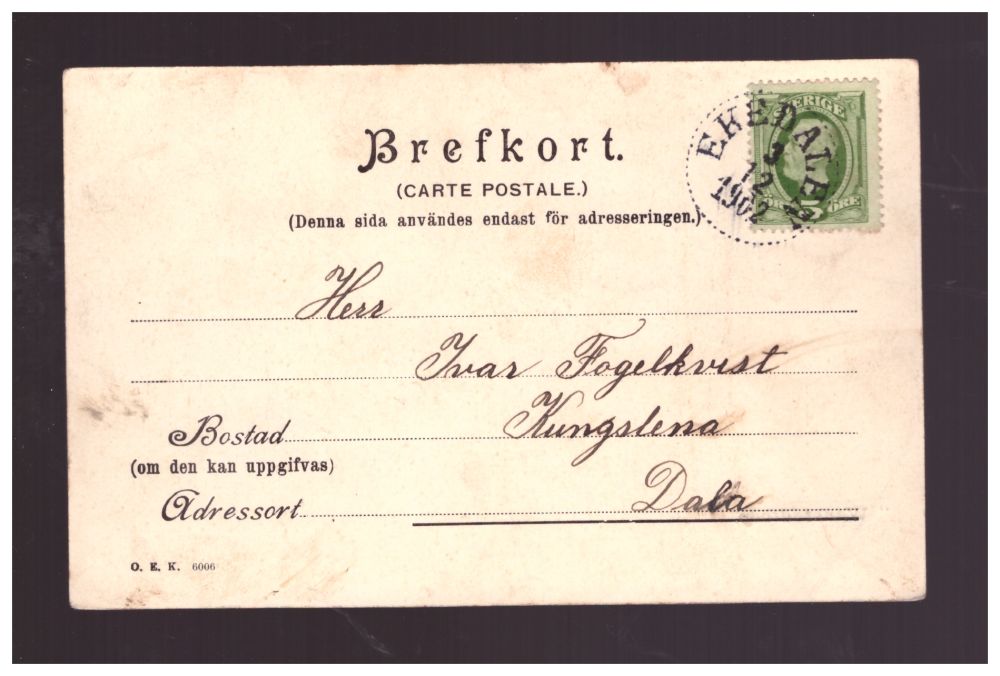 SVERIGE
ÖRE 5 ÖRE
EKEDALEN
3
12
1902
Brefkort.
(CARTE POSTALE.)
(Denna sida användes endast för adresseringen.)
Herr
Ivar Fogelkvist
Bostad Kungslena
(om den kan uppgifvas)
Adressort Dala
O. E. K. 6006